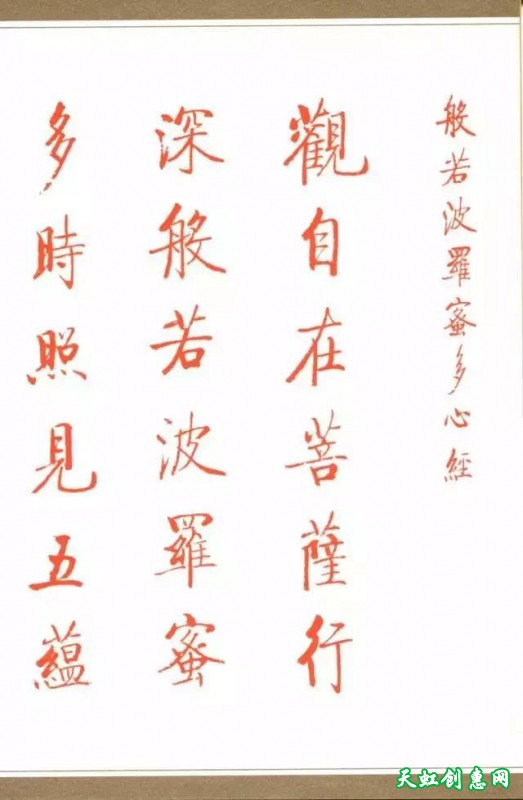 般若波羅蜜多心經
觀自在菩薩行
深般若波羅蜜
多時照見五蘊
天虹创惠网